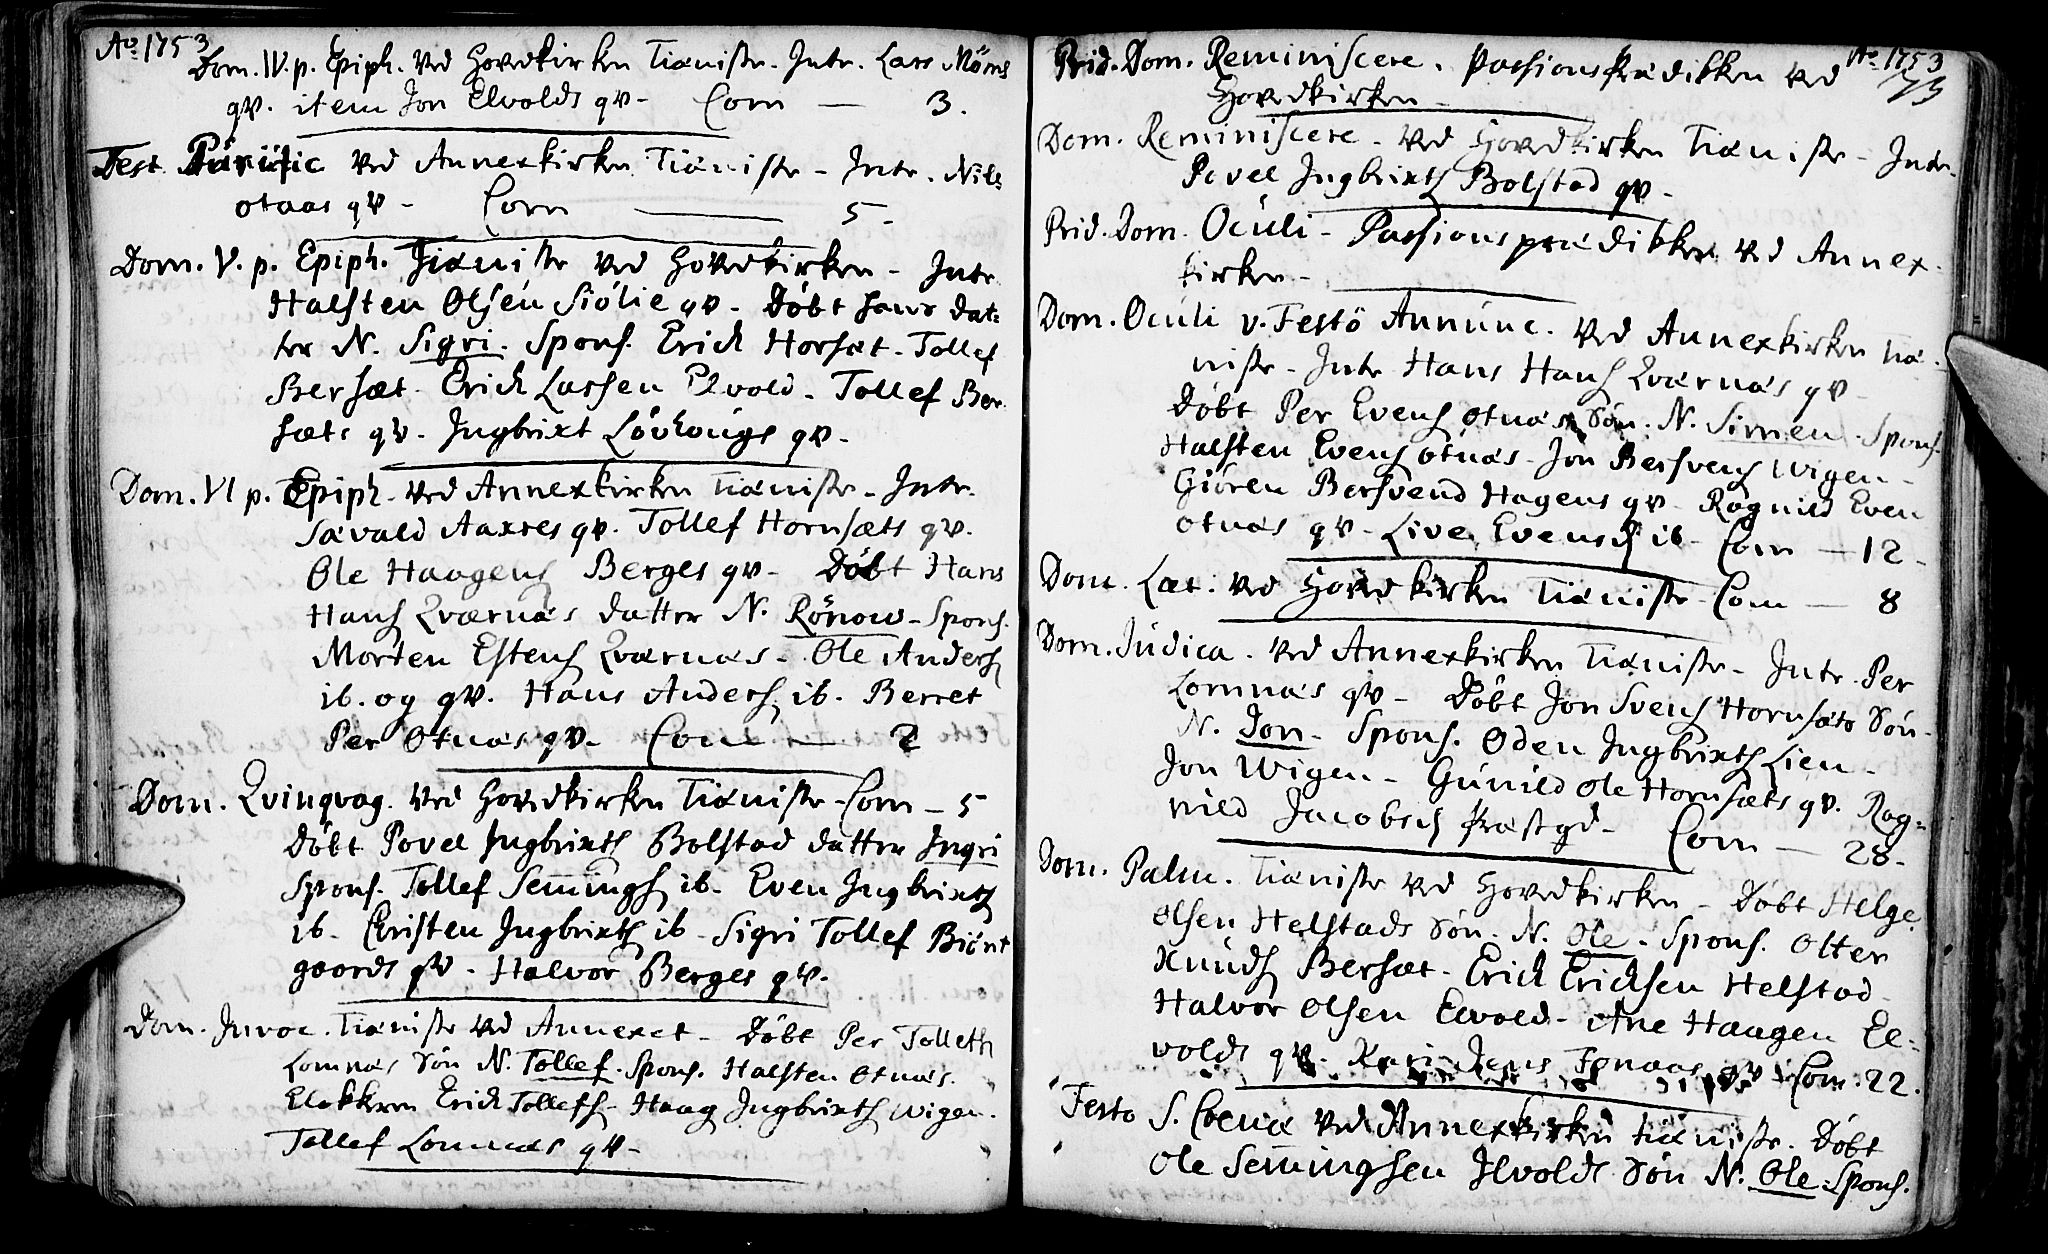 Aº 1753
Dom. IV. p. Epiph. ved Hovedkirken Tieniste. Intr. Lars Møens
qv. item Jon Elvolds qv - Com — 3.
Fest. Purific ved Annexkirken Tieniste - Intr. Nils
otnas qv - Com — 5.
Dom. V. p. Epiph. Tieniste ved Hovedkirken - Intr.
Halsten Olsen Siölie qv - Döbt hans dat:
ter N. Sigri. Spons. Erich Horsæt. Tollef
Bersæt. Erich Lassen Elvold. Tollef Ber
sæts qv. Ingbrixt Lövhöugs qv -
Dom. VI p. Epiph. ved Annexkirken Tieniste - Intr.
Sævald Aaxres qv. Tollef Hornsæts qv.
Ole Haagens Berges qv - Döbt Hans
Hans Qværnæs datter N. Rönow - Spons.
Morten Estens Qværnæs - Ole Anders
ib. og qv. Hans Anders ib. Berret
Per Otnæs qv - Com — 2
Dom. Qvinqvag. ved Hovedkirken Tieniste - Com - 5
Döbt Povel Ingbrixts Bolstad datter Ingri
Spons. Tollef Semings ib - Even Ingbrixts
ib - Cristen Ingbrixts ib - Sigri Tollef Biönt
gaards qv - Halvor Berges qv.
Dom. Invoc. Tieniste ved Annexet - Döbt Per Tollefs
Lomnæs Sön N. Tollef. Spons. Halsten Otnæs.
Klokkeren Erich Tollefs - Haag Ingbrixts Wigen.
Tollef Lomnæs qv -
Aº 1753
73
Prid. Dom. Reminiscere. Passionsprædikken ved
Hovedkirken -
Dom. Reminiscere - ved Hovedkirken Tieniste - Intr.
Povel Ingbrixts Bolstad qv -
Prid. Dom. Oculi - Passionsprædikken ved Annex
kirken -
Dom. Oculi v. Festo Annunc. ved Annexkirken Tie
niste - Intr Hans Hans Qværnæs qv -
Döbt Per Evens otnæs Sön. N. Simen. Spons.
Halsten Evens otnæs - Jon Bersvens Wigen -
Giören Bersvend Hagens qv - Ragnild Even
otnæs qv - Live Evensd ib - Com — 12 -
Dom. Læt. ved Hovedkirken Tieniste - Com — 8
Dom. Judica. ved Annexkirken Tieniste - Intr. Per
Lomnæs qv - Döbt Jon Svens Hornsæts Sön
N. Jon - Spons. Oden Ingbrixts Lien -
Jon Wigen - Gunild Ole Hornsæts qv. Rag:
nild Jacobsd Præstgd - Com — 28 -
Dom. Palm. Tieniste ved Hovedkirken - Döbt Helge
Olsen Helstads Sön. N. Ole. Spons. Olter
Knuds Bersæt - Erich Erichsen Helstad
Halvor Olsen Elvold - Ane Haagen El:
volds qv - Kari Jens Fonaas qv Com. 22.
Festo S. Coenæ ved Annexkirken Tieniste. Döbt
Ole Semingsen Ilvolds Sön N. Ole. Spons.